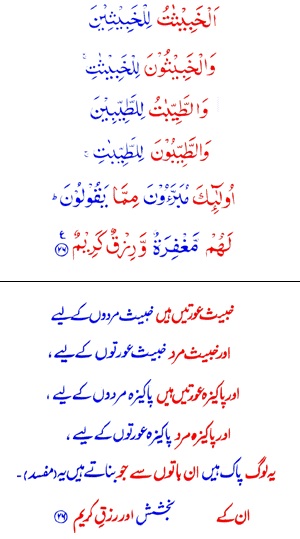 اَلْخَبِيْثٰتُ لِلْخَبِيْثِيْنَ
وَالْخَبِيْثُوْنَ لِلْخَبِيْثٰتِ ۚ
وَالطَّيِّبٰتُ لِلطَّيِّبِيْنَ
وَالطَّيِّبُوْنَ لِلطَّيِّبٰتِ ۚ
اُولٰٓئِكَ مُبَرَّءُوْنَ مِمَّا يَقُوْلُوْنَ ؕ
لَهُمْ مَّغْفِرَةٌ وَّرِزْقٌ كَرِيْمٌ ع ﴿۲۶﴾
خبیث عورتیں ہیں خبیث مردوں کے لیے
اور خبیث مرد خبیث عورتوں کے لیے ،
اور پاکیزہ عورتیں ہیں پاکیزہ مردوں کے لیے ،
اور پاکیزہ مرد پاکیزہ عورتوں کے لیے ،
یہ لوگ پاک ہیں ان باتوں سے جو بناتے ہیں یہ (مفسد) ۔
ان کے بخشش اور رزقِ کریم ﴿۲۶﴾